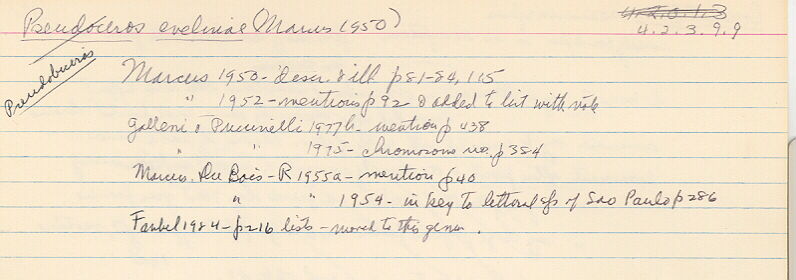 Pseudoceros evelinae (Marcus 1950)
4.2.0.1.3
4.2.3.9.9
Pseudobiceros
Marcus 1950 - descr. & ill p81-84, 115
" 1952 - mentions p92 & added to list with note
Galleni & Puccinelli 1977b - mention p 438
" " 1975 - chromosome no. p384
Marcus. Du Bois-R 1955a - mention p40
" " 1954 - in key to littoral sp of Sao Paulo p286
Faubel 1984 - p216 lists - moved to this genus.